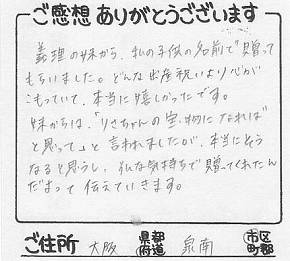 ご感想ありがとうございます
義理の妹から、私の子供の名前で贈って
もらいました。どんな出産祝いより心が
こもっていて、本当に嬉しかったです。
妹からは、「りさちゃんの宝物になれば
と思って」と言われましたが、本当にそう
なると思うし、そんな気持ちで贈ってくれたん
だよって伝えていきます。
ご住所 大阪 都道府県 泉南 市区町郡